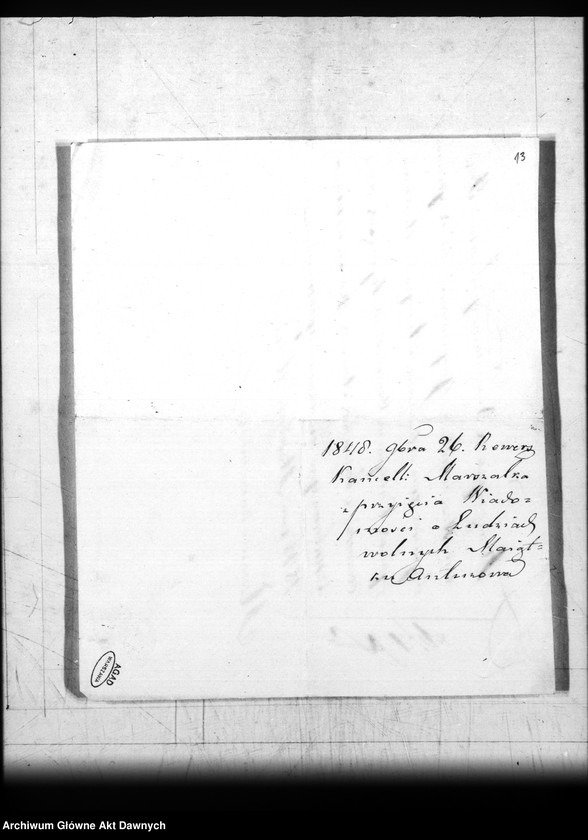 13
1848. 9bra 26. Rewers
Kancelli Marszałka
z przyięcia Wiado=
mości o Ludziach
wolnych Maiąt=
ku Antuzowa
AGAD
WARSZAWA
Archiwum Główne Akt Dawnych